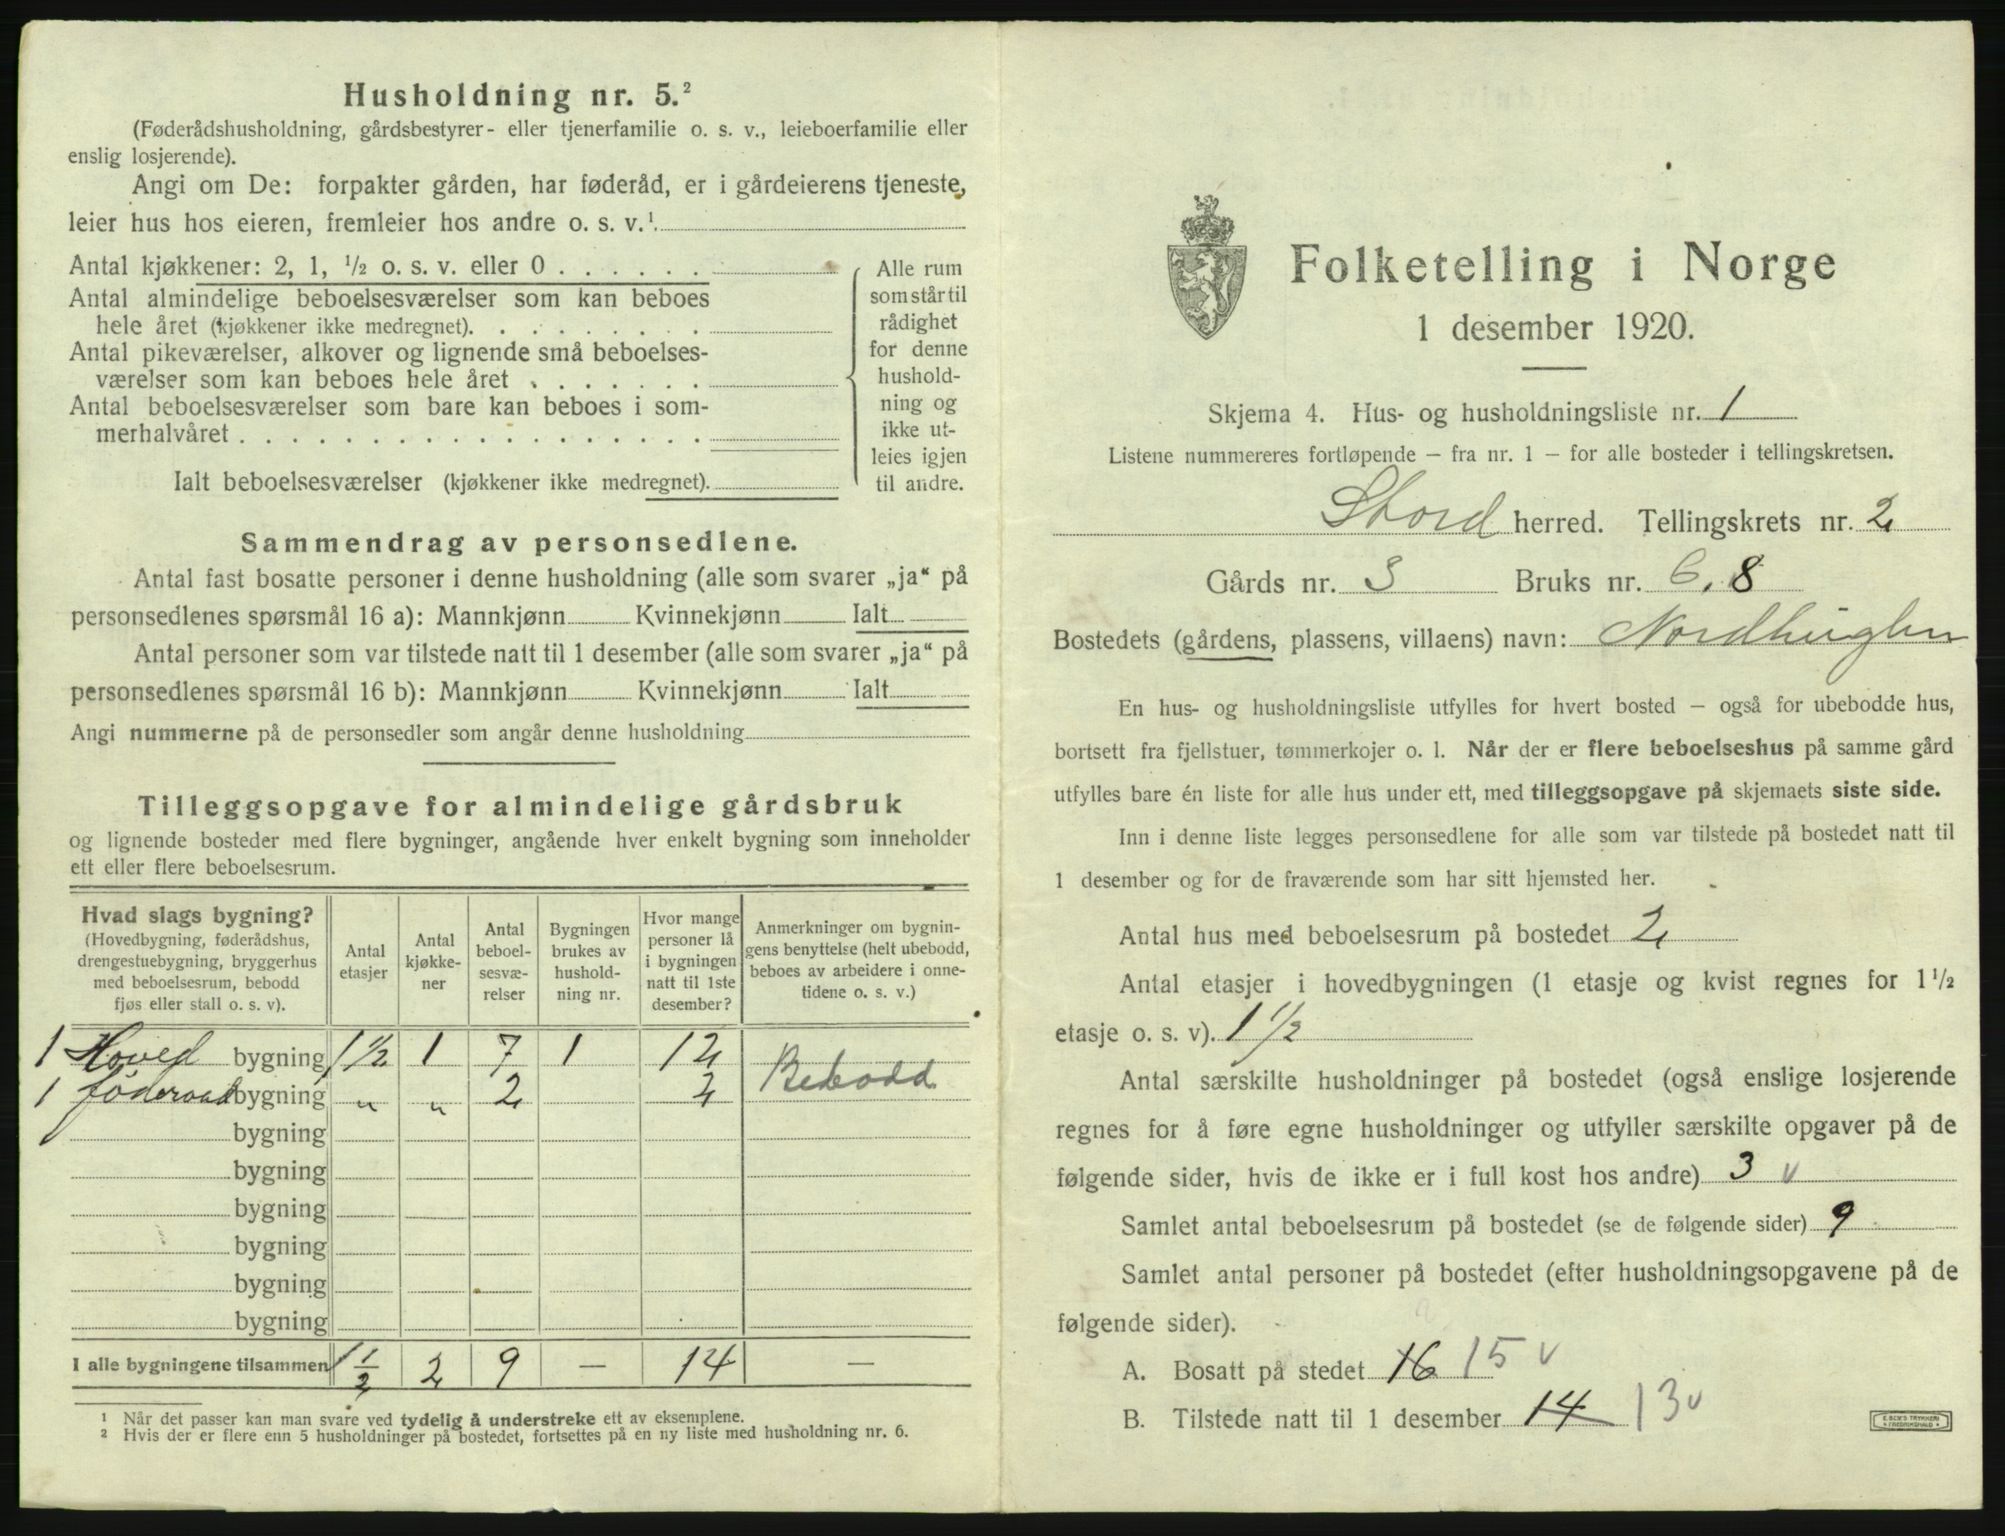 Husholdning nr. 5.²
(Føderådshusholdning, gårdsbestyrer- eller tjenerfamilie o. s. v., leieboerfamilie eller
enslig losjerende).
Angi om De: forpakter gården, har føderåd, er i gårdeierens tjeneste,
leier hus hos eieren, fremleier hos andre o. s. v.¹
Antal kjøkkener: 2, 1, ½ o. s. v. eller 0
Antal almindelige beboelsesværelser som kan beboes
hele året (kjøkkener ikke medregnet).
Antal pikeværelser, alkover og lignende små beboelses-
værelser som kan beboes hele året
Antal beboelsesværelser som bare kan beboes i som-
merhalvåret
Ialt beboelsesværelser (kjøkkener ikke medregnet).
Alle rum
som står til
rådighet
for denne
hushold-
ning og
ikke ut-
leies igjen
til andre.
Sammendrag av personsedlene.
Antal fast bosatte personer i denne husholdning (alle som svarer „ja“ på
personsedlenes spørsmål 16 a): Mannkjønn Kvinnekjønn Ialt
Antal personer som var tilstede natt til 1 desember (alle som svarer „ja“ på
personsedlenes spørsmål 16 b): Mannkjønn Kvinnekjønn Ialt
Angi nummerne på de personsedler som angår denne husholdning
Tilleggsopgave for almindelige gårdsbruk
og lignende bosteder med flere bygninger, angående hver enkelt bygning som inneholder
ett eller flere beboelsesrum.
Hvad slags bygning?
(Hovedbygning, føderådshus,
drengestuebygning, bryggerhus
med beboelsesrum, bebodd
fjøs eller stall o. s. v).
Antal
etasjer
Antal
kjøkke-
ner
Antal
beboel-
sesvæ-
relser
Bygningen
brukes av
hushold-
ning nr.
Hvor mange
personer lå
i bygningen
natt til 1ste
desember?
Anmerkninger om bygnin-
gens benyttelse (helt ubebodd,
beboes av arbeidere i onne-
tidene o. s. v.)
1 Hoved bygning 1½ 1 7 1 12
1 föderaad bygning „ „ 2 2 Bebodd
bygning
bygning
bygning
bygning
bygning
bygning
I alle bygningene tilsammen 1½ 2 9 — 14 —
¹ Når det passer kan man svare ved tydelig å understreke ett av eksemplene.
² Hvis der er flere enn 5 husholdninger på bostedet, fortsettes på en ny liste med husholdning nr. 6.
Folketelling i Norge
1 desember 1920.
Skjema 4. Hus- og husholdningsliste nr. 1
Listene nummereres fortløpende — fra nr. 1 — for alle bosteder i tellingskretsen.
Stord herred. Tellingskrets nr. 2
Gårds nr. 3 Bruks nr. 6, 8
Bostedets (gårdens, plassens, villaens) navn: Nordhuglen
En hus- og husholdningsliste utfylles for hvert bosted — også for ubebodde hus,
bortsett fra fjellstuer, tømmerkojer o. l. Når der er flere beboelseshus på samme gård
utfylles bare én liste for alle hus under ett, med tilleggsopgave på skjemaets siste side.
Inn i denne liste legges personsedlene for alle som var tilstede på bostedet natt til
1 desember og for de fraværende som har sitt hjemsted her.
Antal hus med beboelsesrum på bostedet 2
Antal etasjer i hovedbygningen (1 etasje og kvist regnes for 1½
etasje o. s. v). 1½
Antal særskilte husholdninger på bostedet (også enslige losjerende
regnes for å føre egne husholdninger og utfyller særskilte opgaver på de
følgende sider, hvis de ikke er i full kost hos andre) 3 v
Samlet antal beboelsesrum på bostedet (se de følgende sider) 9
Samlet antal personer på bostedet (efter husholdningsopgavene på de
følgende sider).
A. Bosatt på stedet 16 15 v
B. Tilstede natt til 1 desember 14 13 v
E. SEM'S TRYKKERI
FREDRIKSHALD